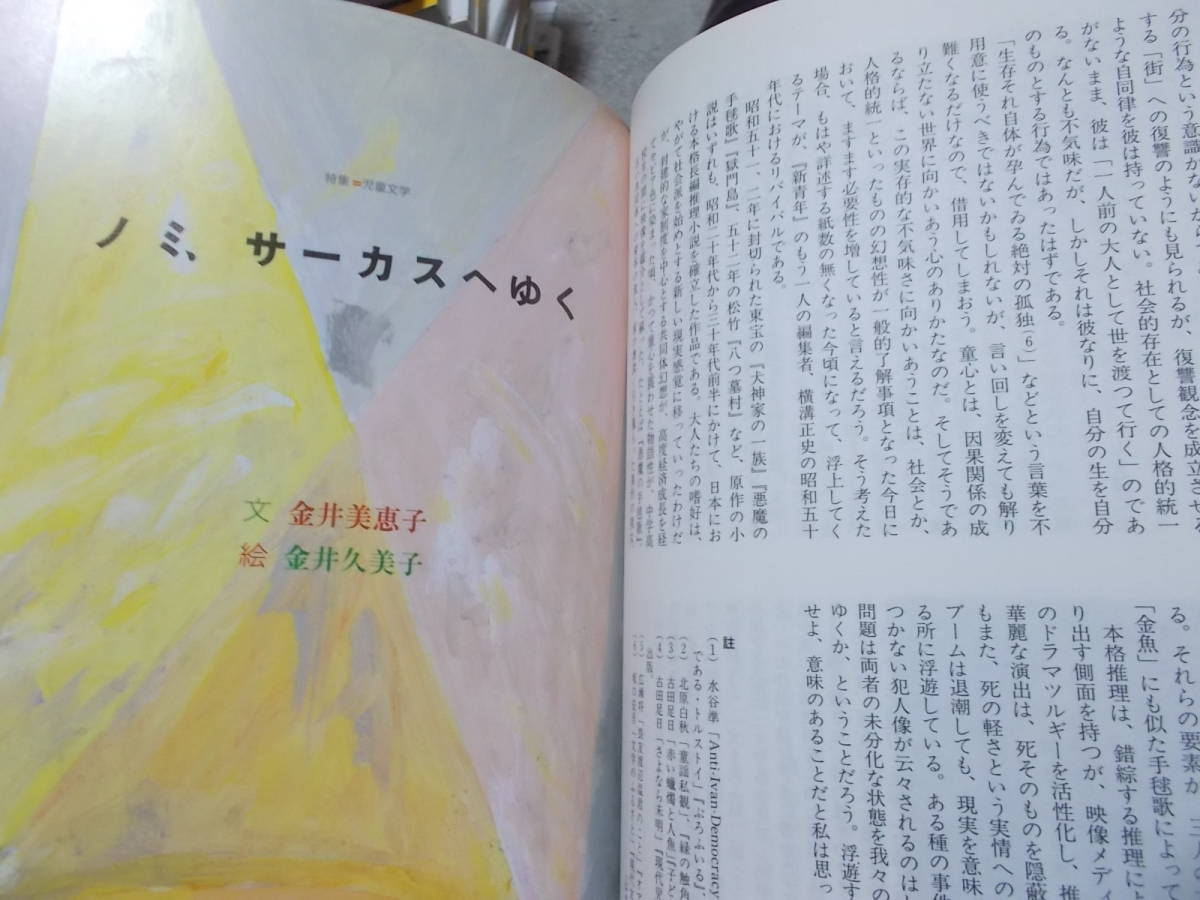 分の行為という意識がないから、
する「街」への復讐のようにも見られるが、復讐観念を成立させ
ような自同律を彼は持っていない。社会的存在としての人格的統一
がないまま、彼は「一人前の大人として世を渡つて行く」のであ
る。なんとも不気味だが、しかしそれは彼なりに、自分の生を自分
のものとする行為ではあったはずである。
「生存それ自体が孕んでゐる絶対の孤独(6)」などという言葉を不
用意に使うべきではないかもしれないが、言い回しを変えても解り
難くなるだけなので、借用してしまおう。童心とは、因果関係の成
り立たない世界に向かいあう心のありかたなのだ。そしてそうであ
るならば、この実存的な不気味さに向かいあうことは、社会とか、
人格的統一といったものの幻想性が一般的了解事項となった今日に
おいて、ますます必要性を増していると言えるだろう。そう考えた
場合、もはや詳述する紙数の無くなった今頃になって、浮上してく
るテーマが、『新青年』のもう一人の編集者、横溝正史の昭和五十
年代におけるリバイバルである。
昭和五十一、二年に封切られた東宝の『犬神家の一族』『悪魔の
手毬歌』『獄門島』、五十二年の松竹『八つ墓村』など、原作の小
説はいずれも、昭和二十年代から三十年代前半にかけて、日本にお
ける本格長編推理小説を確立した作品である。大人たちの嗜好は、
やがて社会派を始めとする新しい現実感覚に移っていったわけだ
が、封建的な家制度を中心とする共同体幻想が、高度経済成長を経
る。それらの要素が
「金魚」にも似た手毬歌によって
本格推理は、錯綜する推理によ
り出す側面を持つが、映像メディ
のドラマツルギーを活性化し、推
華麗な演出は、死そのものを隠蔽
もまた、死の軽さという実情への
ブームは退潮しても、現実を意味
る所に浮遊している。ある種の事件
つかない犯人像が云々されるのはし
問題は両者の未分化な状態を我々の
ゆくか、ということだろう。浮遊す
せよ、意味のあることだと私は思っ
註
(1) 水谷準「Anti-Ivan-Democracy
である・トルストイ」『ぷろふいる』、
(2) 北原白秋「童謡私観」、『緑の触角
(3) 古田足日「赤い蠟燭と人魚」『子ど
(4) 古田足日「さよなら未明」『現代児
出版。
特集=児童文学
ノミ、サーカスへゆく
文 金井美恵子
絵 金井久美子